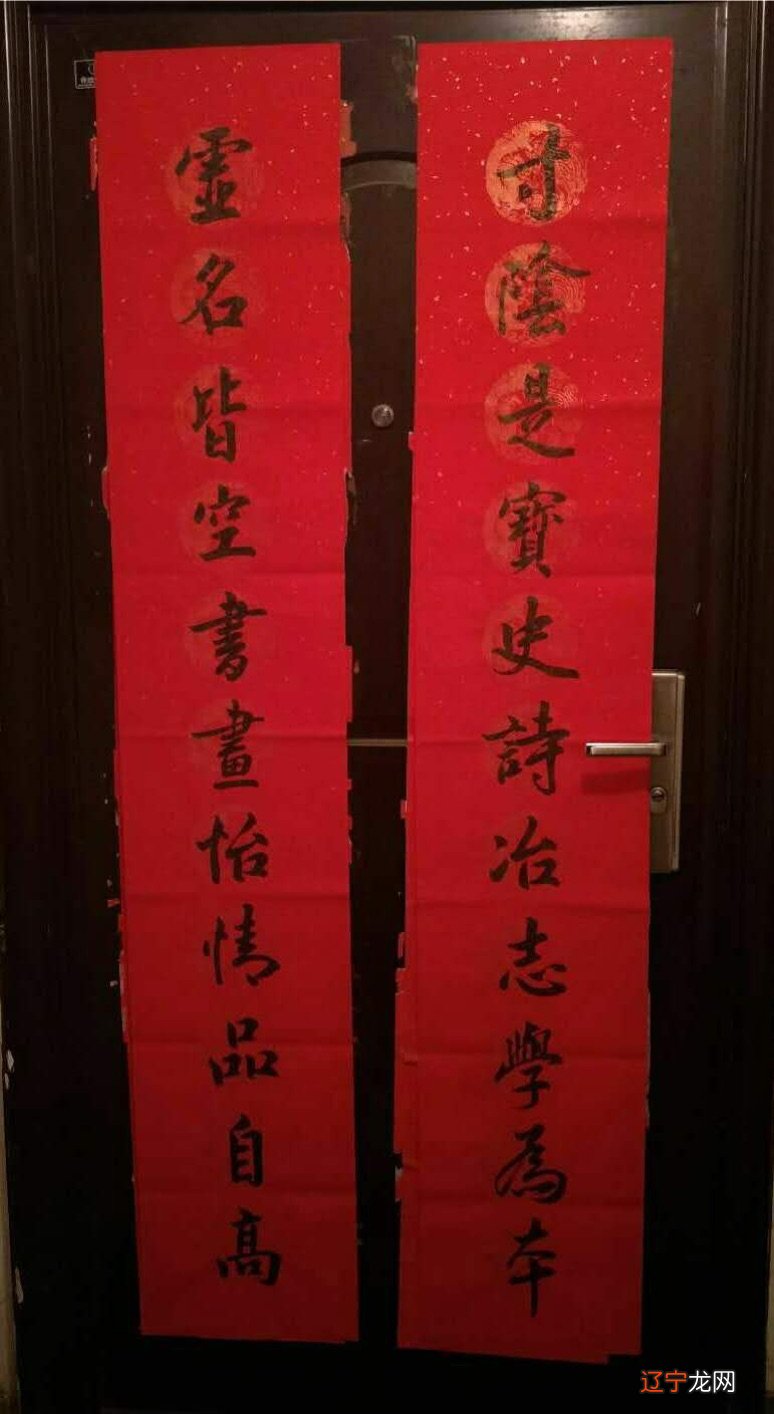 寸陰是寶史詩冶志學為本
虛名皆空書畫怡情品自高
辽宁龙网